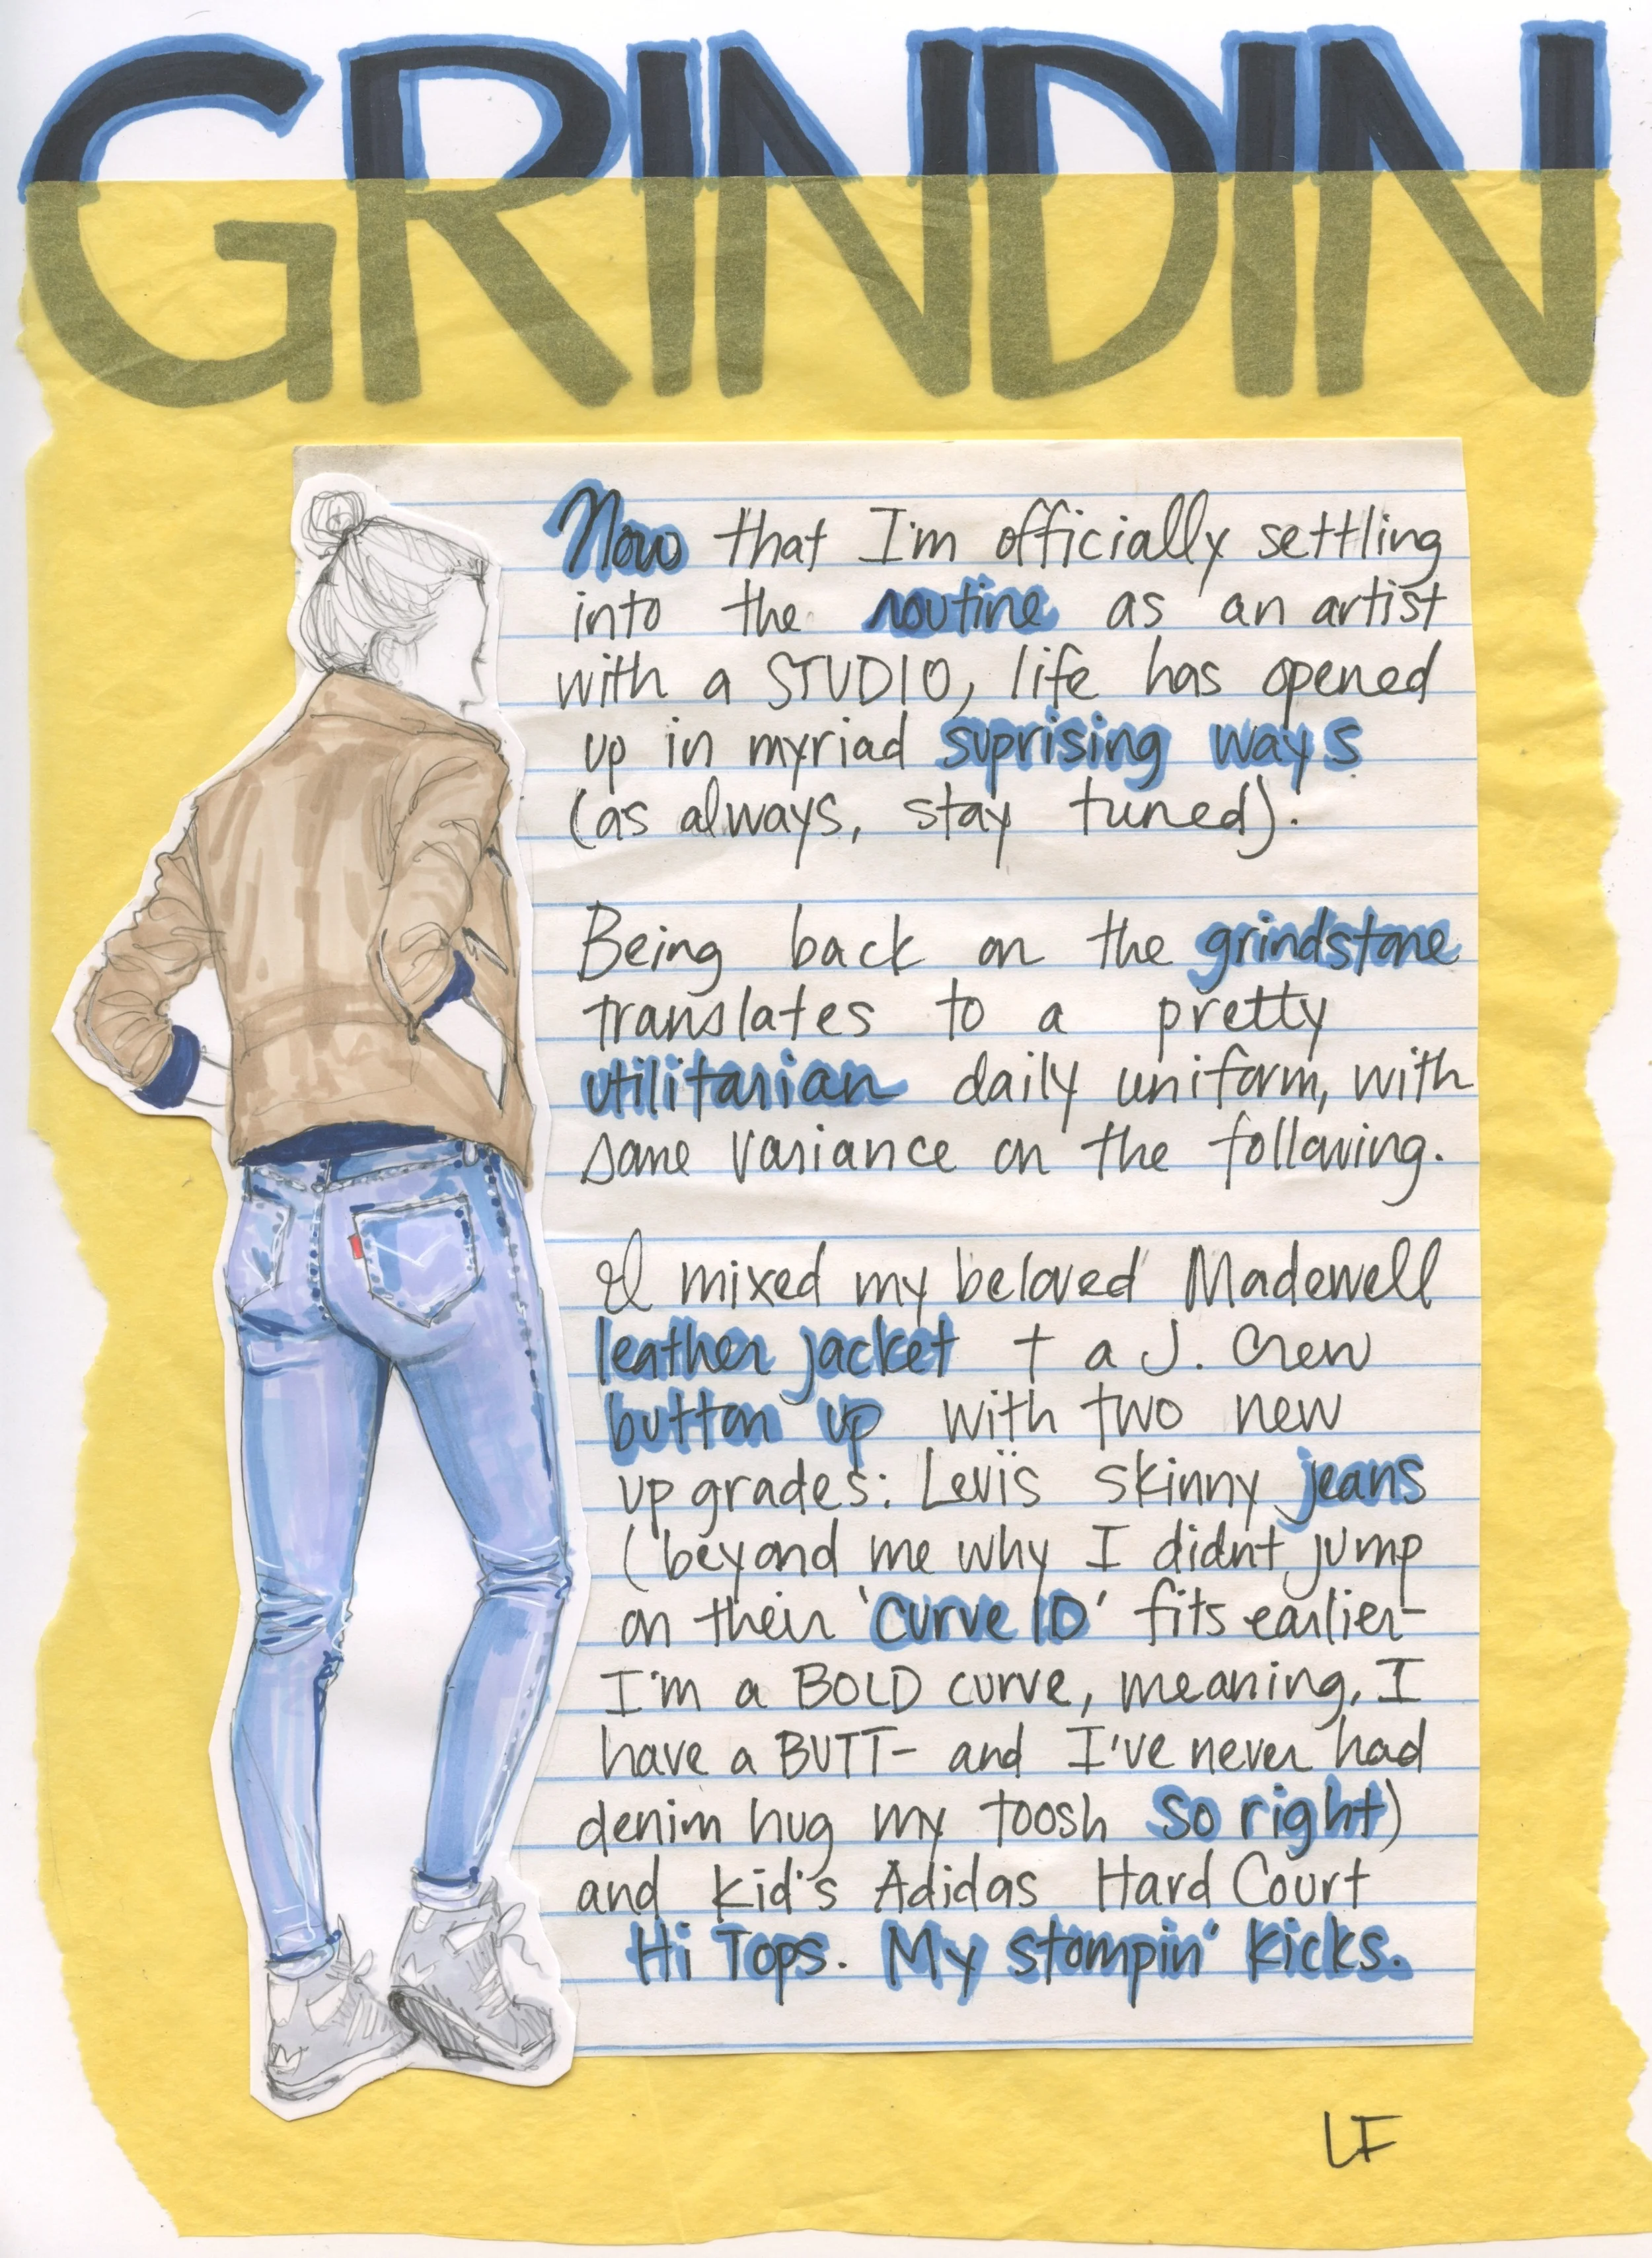 GRINDIN
Now that I'm officially settling
into the routine as an artist
with a STUDIO, life has opened
up in myriad suprising ways
(as always, stay tuned).
Being back on the grindstone
translates to a pretty
utilitarian daily uniform, with
some variance on the following.
I mixed my beloved Madewell
leather jacket + a J. Crew
button up with two new
upgrades: Levi's skinny jeans
(beyond me why I didnt jump
on their 'Curve ID' fits earlier-
I'm a BOLD curve, meaning, I
have a BUTT- and I've never had
denim hug my toosh so right)
and kid's Adidas Hard Court
Hi Tops. My stompin' kicks.
LF